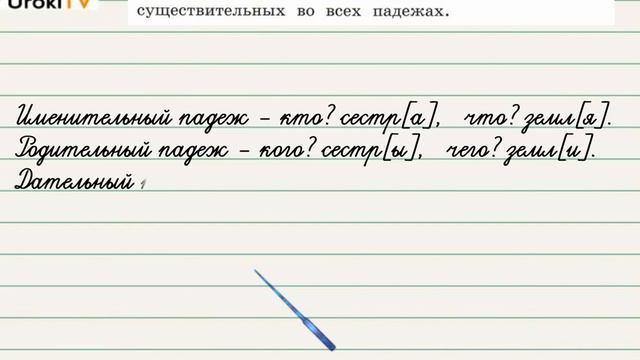 UrokiTV
существительных во всех падежах.
Именительный падеж – кто? сестр[а], что? земл[я].
Родительный падеж – кого? сестр[ы], чего? земл[и].
Дательный